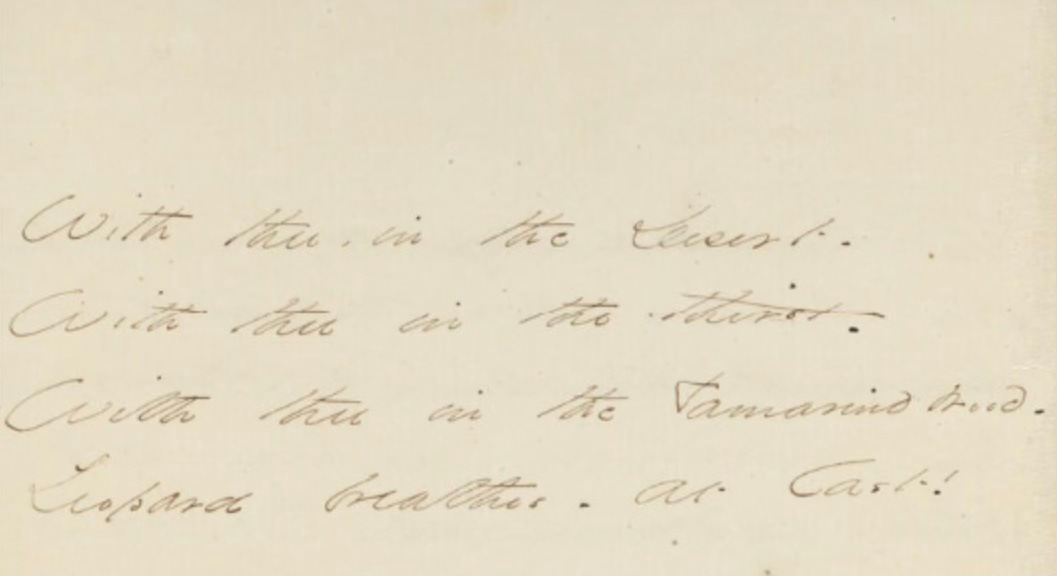 With thee, in the Desert -
With thee in the thirst -
With thee in the Tamarind wood -
Leopard breathes - at last!